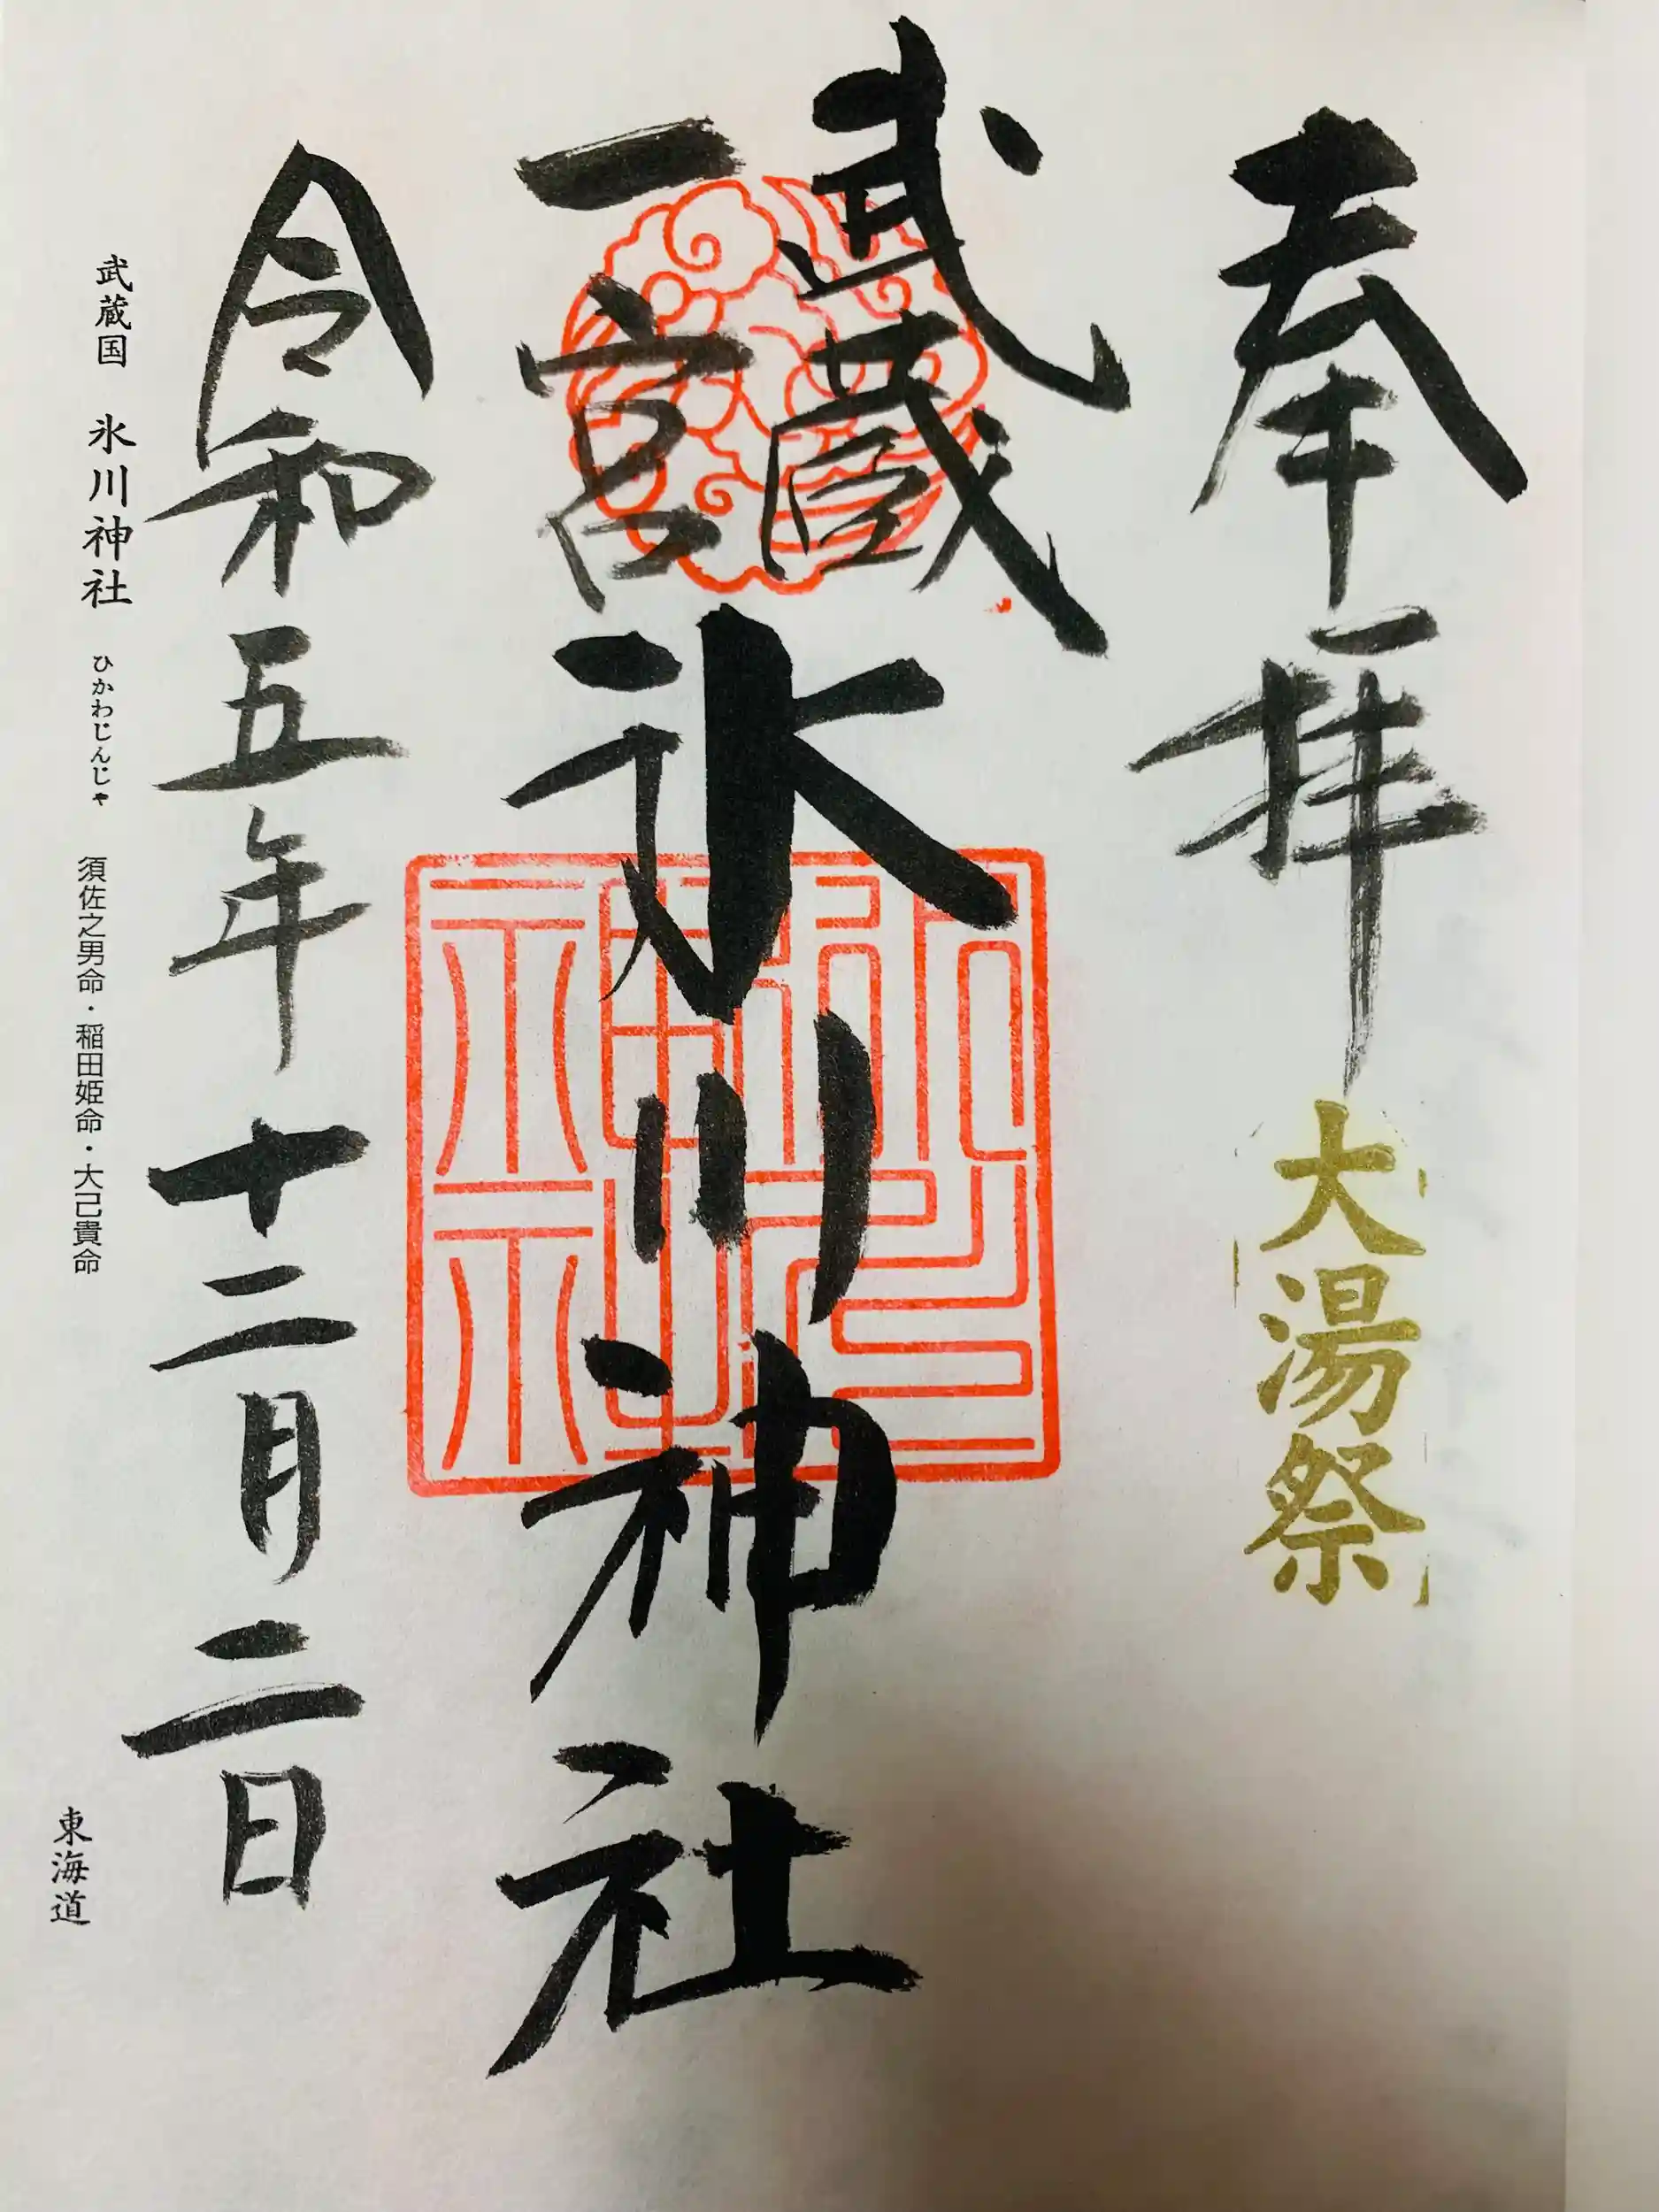 奉拝
大湯祭
武蔵
一宮
氷川神社
氷川神社
令和五年十二月二日
武蔵国 氷川神社 ひかわじんじゃ 須佐之男命・稲田姫命・大己貴命
東海道